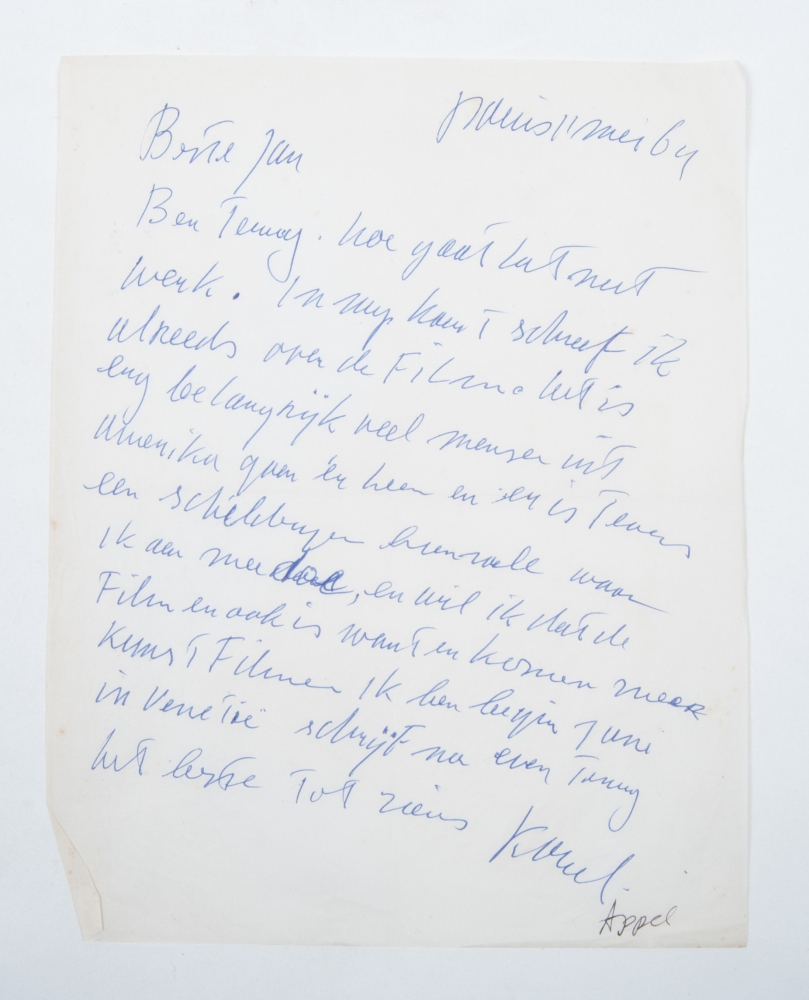 Parijs 11 mei 64
Beste Jan
Ben Terug. hoe gaat het met
werk. In mijn kaart schreef ik
alreeds over de Film. het is
erg belangrijk veel mensen uit
Amerika gaan er heen en er is Tevens
een schilderijen biennale waar
ik aan mee doe, en wil ik dat de
Film er ook is want er komen meer
KunsT Filmen Ik ben begin juni
in VeneTië schrijf me even Terug
het beste ToT ziens Karel.
Appel